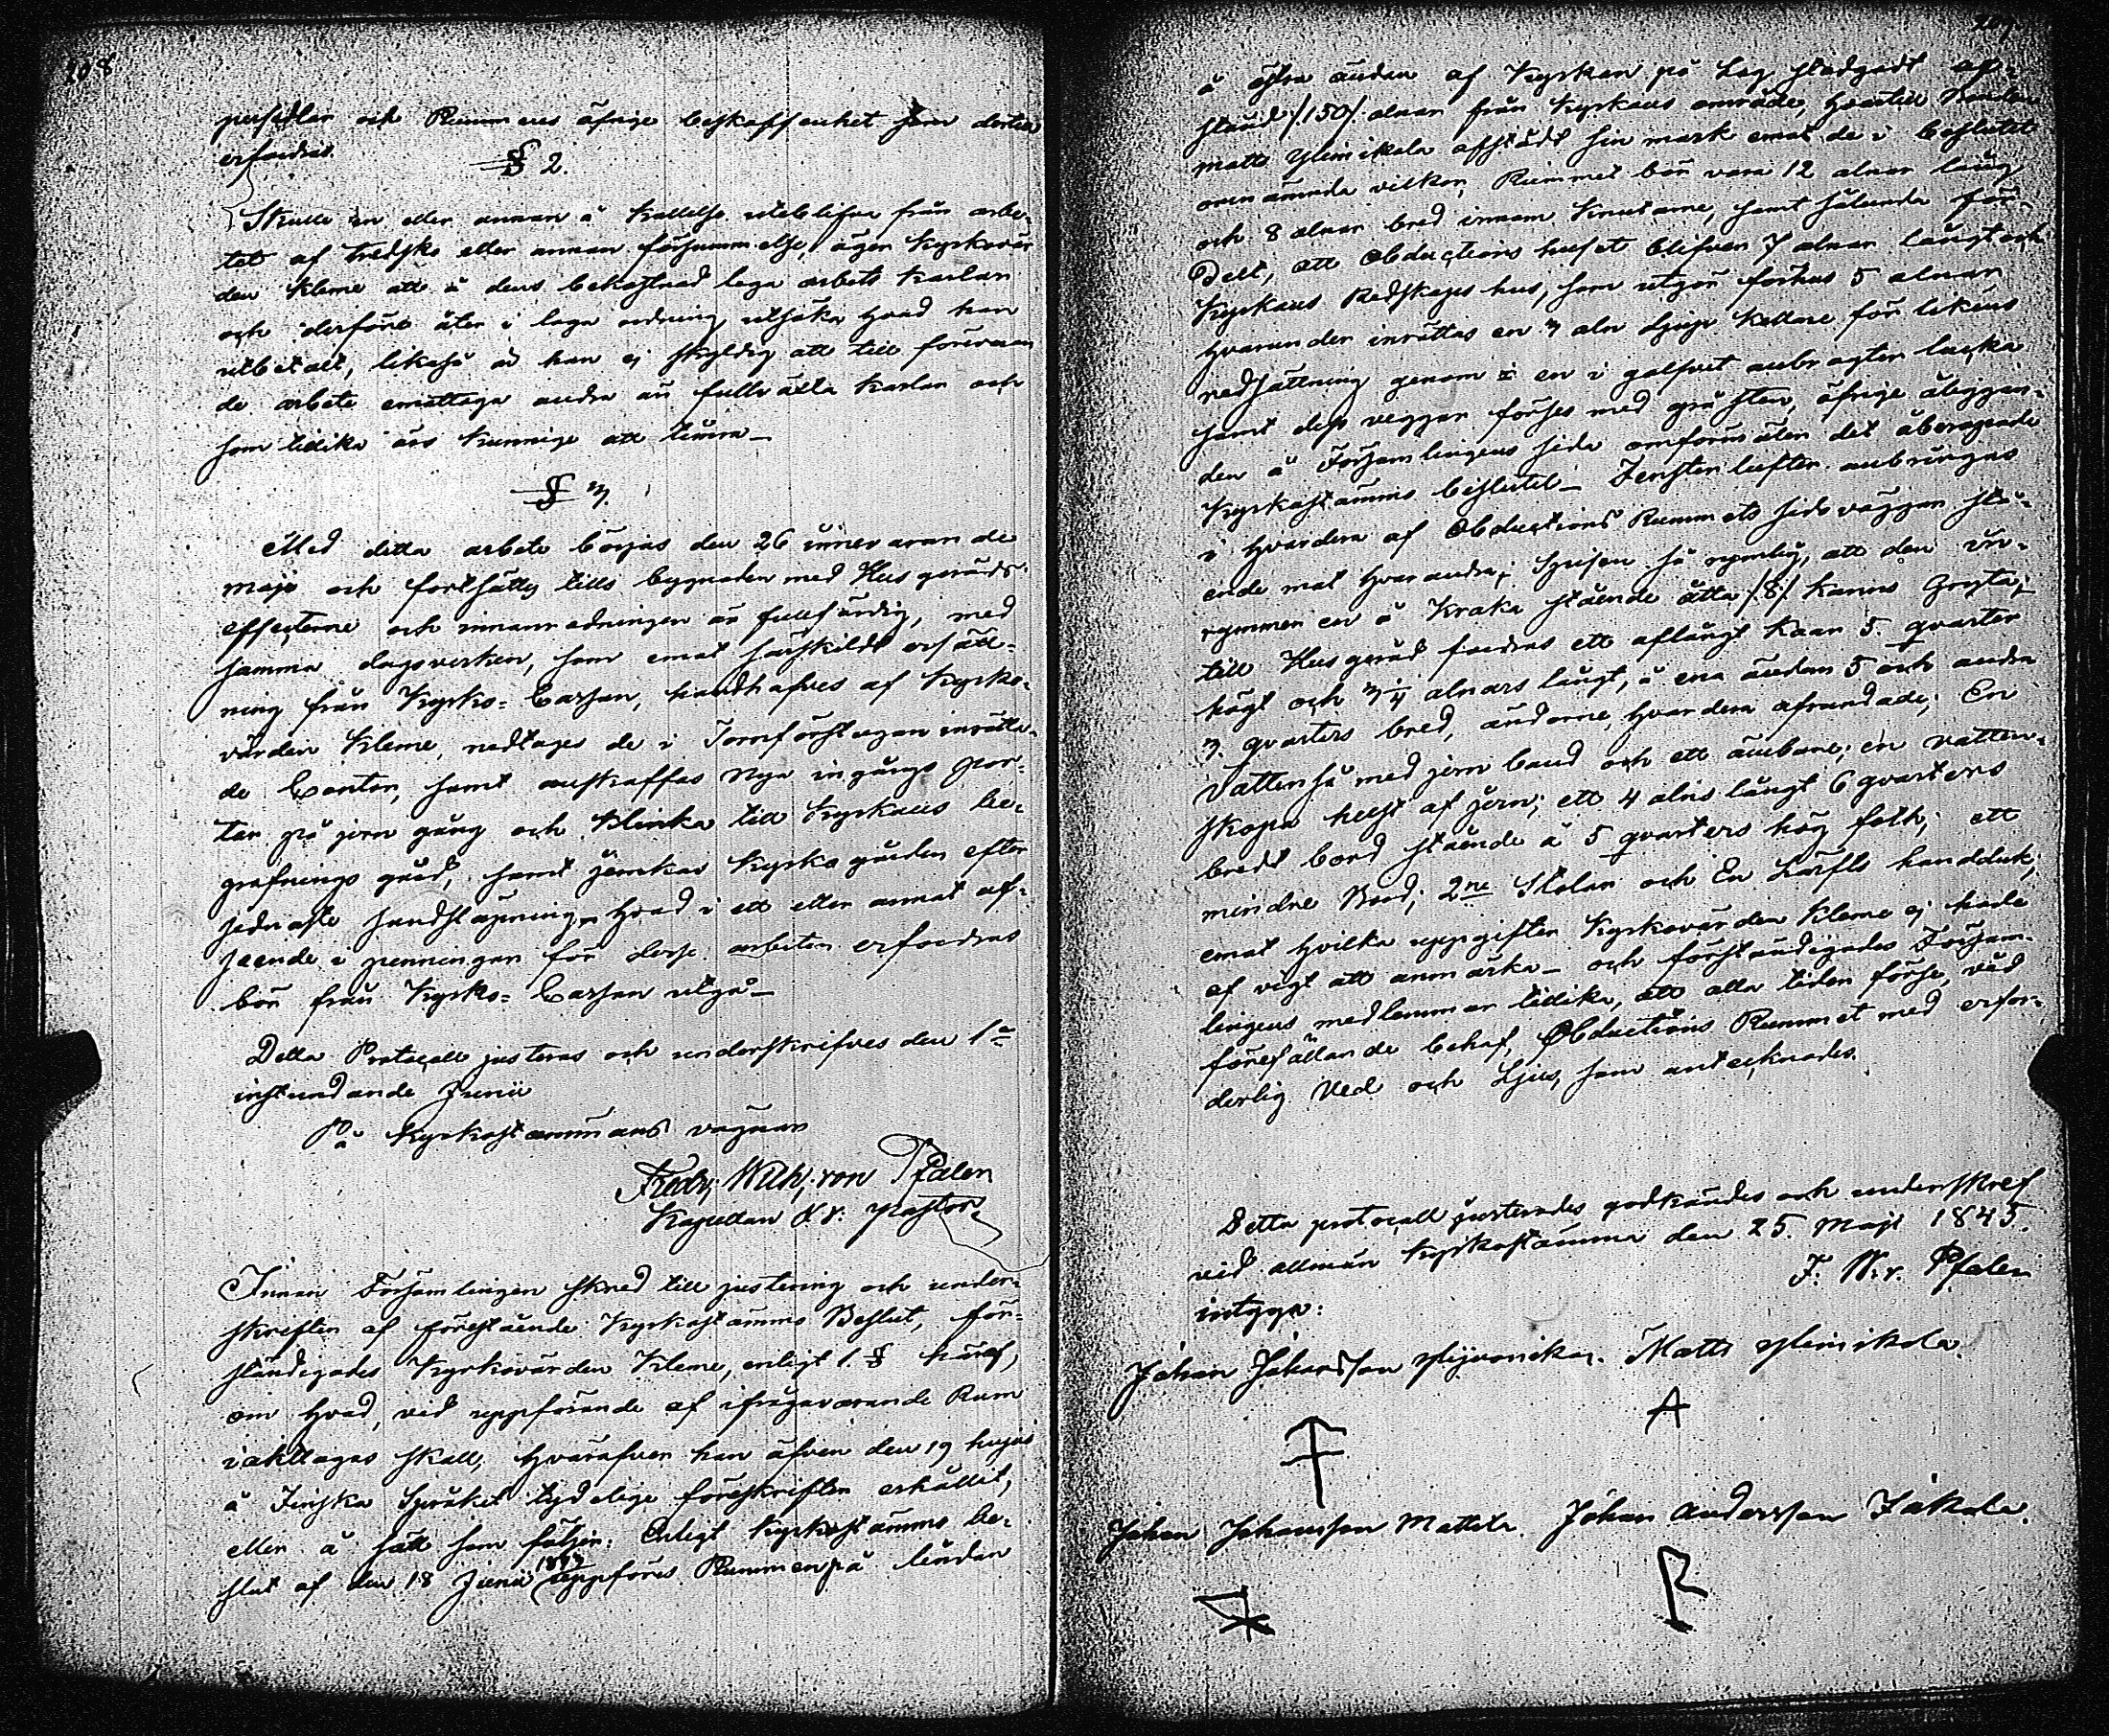 208
persedlar och Rummens öfrige beskaffenhet som dertill
erfordras.
§ 2.
Skulle en eller annan å kallelse uteblifva från arbe-
tet af tredsko eller annan försummelse, äger Kyrkovär
den Kleme att å dens bekostnad lega arbets karlar
och derföre åter i laga ordning utsöka hvad han
utbetalt, likaså är han ej skyldig att till förevaran
de arbete emottaga andra än fullväxta karlar och
som tillika äro kunnige att timra —
§ 3.
Med detta arbete börjas den 26 innevarande
maji och fortsättes tills bygnaden med Husgeråds
effecterne och innanredningen är fullfärdig, med
samma dagsverken, som emot särskildt ersätt-
ning från Kyrko-Cassan, handhafves af Kyrko-
värden Kleme, nedtages de i Tornförstugan inrätta-
de Contor, samt anskaffas nya ingångs por-
tar på jern gång och Klinka till Kyrkans be-
grafnings gård, samt jemkas Kyrkogården efter
sednaste sandstöpning. Hvad i ett eller annat af-
seende i penningar för desse arbeten erfordras
bör från Kyrko-Cassan utgå —
Detta Protocoll justeras och underskrifves den 1a
instundande Junii
På Kyrkostämmans vägnar
Fredr. Wilh. von Pfaler
Kapellan V. v. pastor.
Innan Församlingen skred till justering och under-
skriften af förestående Kyrkostämmo Beslut, för-
ständigades Kyrkovärden Kleme, enligt 1. § häraf,
om hvad, vid uppförande af ifrågavarande Rum
iakttagas skall, hvarafven han äfven den 19 hujus
å Finska Språket tydelige föreskrifter erhållit,
eller å sätt som följer: Enligt Kyrkostämmo be-
slut af den 18 Junii 1843 uppföres Rummen på lindan
209
å östra ändan af Kyrkan på Lag stadgadt af-
stånd /:150/: alnar från Kyrkans område, hvartill Bonden
Matts Ylinikola afstådt sin mark emot de i beslutet
omnämnda vilkor, Rummet bör vara 12 alnar lång
och 8 alnar bred innom Knutarne, samt sålunda för-
delt, att Obductions huset blifver 7 alnar långt och
Kyrkans Redskaps hus, som utgör förhus 5 alnar
hvarunder inrättas en 3 aln djup Kellare för likens
nedsättning genom en i golfvet anbragter lucka
samt dess veggar förses med gråsten, öfrige åliggan-
den å Församlingens sida omförmäler det åberopade
Kyrkostämmo beslutet — Fensterlufter anbringas
i hvardera af Obductions Rummets sido väggar stå-
ende mot hvarandra; Spisen så rymlig, att den in-
rymmer en å Kraka stående åtta /:8/: kanns Gryta;
till Husgeråd fordras ett aflångt Kaar 5. qvarter
högt och 3/4 alnars långt, å ena ändan 5 och andra
3. qvarters bred, ändorne hvardera afrundade; En
Vattenså med jern band och ett ämbare; en vatten-
skopa helst af jern; ett 4 alns långt 6 qvarters
bredt bord stående å 5 qvarters hög foth; ett
mindre Bord; 2ne Stolar och En Lärfts handduk;
emot hvilka uppgifter Kyrkovärden Kleme ej hade
af vigt att anmärka — och förständigades Försam-
lingens medlemmar tillika, att alla tider förse, vid
förefallande behof, Obductions Rummet med erfor-
derlig Ved och Ljus, som antecknades.
Detta protocoll justerades godkändes och underskref
vid allmän Kyrkostämma den 25. Maji 1845.
F. W. v. Pfaler
intyga:
Johan Johansson Matts Ylinikola.
Johan Johansson Mattila. Johan Andersson Jäkola.